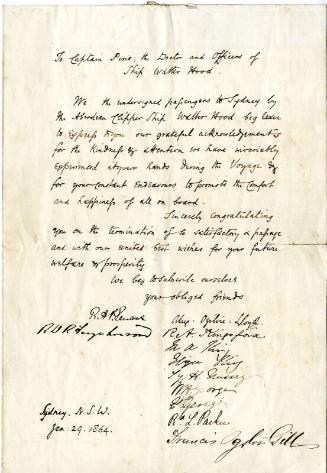 To Captain Purie, the Doctor and Officers of
Ship Walter Hood.
We the undersigned passengers to Sydney by
the Aberdeen Clipper Ship Walter Hood beg leave
to express to you our grateful acknowledgements
for the Kindness & Attention we have invariably
experienced at your hands during the Voyage &
for your constant Endeavours to promote the Comfort
and happiness of all on board.
Sincerely congratulating
you on the termination of so satisfactory a passage
and with our united best wishes for your future
welfare & prosperity
We beg to subscribe ourselves
your obliged friends
Alex. Ogilvie
Kingsford
King
King
H.
George
George
L. Parker
Francis Ogilvie Gill
Sydney. N.S.W.
Jan. 29. 1864.